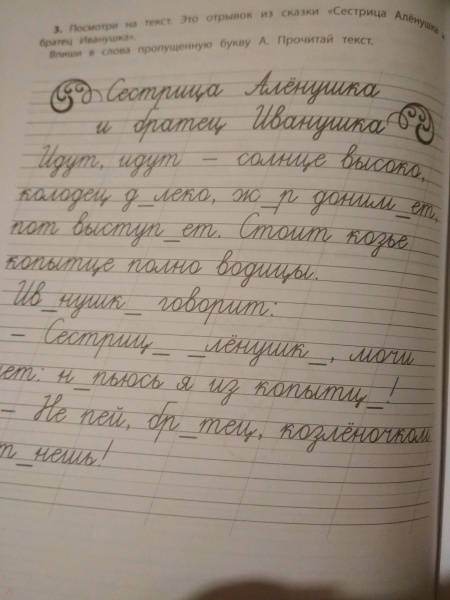 3. Посмотри на текст. Это отрывок из сказки «Сестрица Алёнушка и
братец Иванушка».
Впиши в слова пропущенную букву А. Прочитай текст.
Сестрица Алёнушка
и братец Иванушка
Идут, идут – солнце высоко,
колодец д_леко, ж_р доним_ет,
пот выступ_ет. Стоит козье
копытце полно водицы.
Ив_нушк_ говорит:
– Сестриц_ _лёнушк_, мочи
ет: н_пьюсь я из копытц_!
– Не пей, бр_тец, козлёночком
т_нешь!